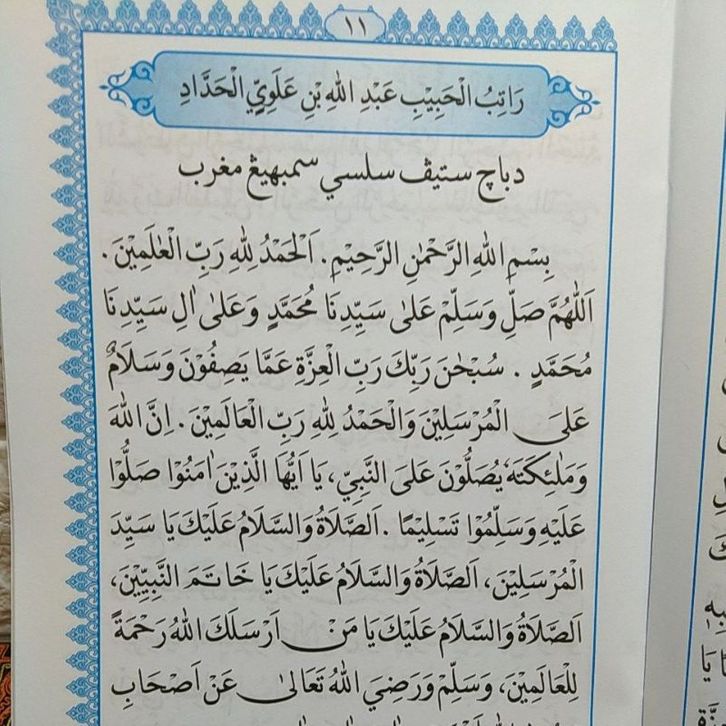 ١١
رَاتِبُ الْحَبِيْبِ عَبْدِ اللهِ بْنِ عَلَوِيِّ الْحَدَّادِ
دباچ ستيڤ سلسي سمبهيڠ مغرب
بِسْمِ اللهِ الرَّحْمٰنِ الرَّحِيْمِ. اَلْحَمْدُ لِلّٰهِ رَبِّ الْعٰلَمِيْنَ.
اَللّٰهُمَّ صَلِّ وَسَلِّمْ عَلٰى سَيِّدِنَا مُحَمَّدٍ وَعَلٰى اٰلِ سَيِّدِنَا
مُحَمَّدٍ . سُبْحٰنَ رَبِّكَ رَبِّ الْعِزَّةِ عَمَّا يَصِفُوْنَ وَسَلَامٌ
عَلَى الْمُرْسَلِيْنَ وَالْحَمْدُ لِلّٰهِ رَبِّ الْعَالَمِيْنَ. اِنَّ اللهَ
وَمَلٰئِكَتَهٗ يُصَلُّوْنَ عَلَى النَّبِيِّ، يَا اَيُّهَا الَّذِيْنَ اٰمَنُوْا صَلُّوْا
عَلَيْهِ وَسَلِّمُوْا تَسْلِيْمًا . اَلصَّلَاةُ وَالسَّلَامُ عَلَيْكَ يَا سَيِّدَ
الْمُرْسَلِيْنَ، اَلصَّلَاةُ وَالسَّلَامُ عَلَيْكَ يَا خَاتَمَ النَّبِيِّيْنَ،
اَلصَّلَاةُ وَالسَّلَامُ عَلَيْكَ يَا مَنْ اَرْسَلَكَ اللهُ رَحْمَةً
لِلْعَالَمِيْنَ، وَسَلِّمْ وَرَضِيَ اللهُ تَعَالٰى عَنْ اَصْحَابِ